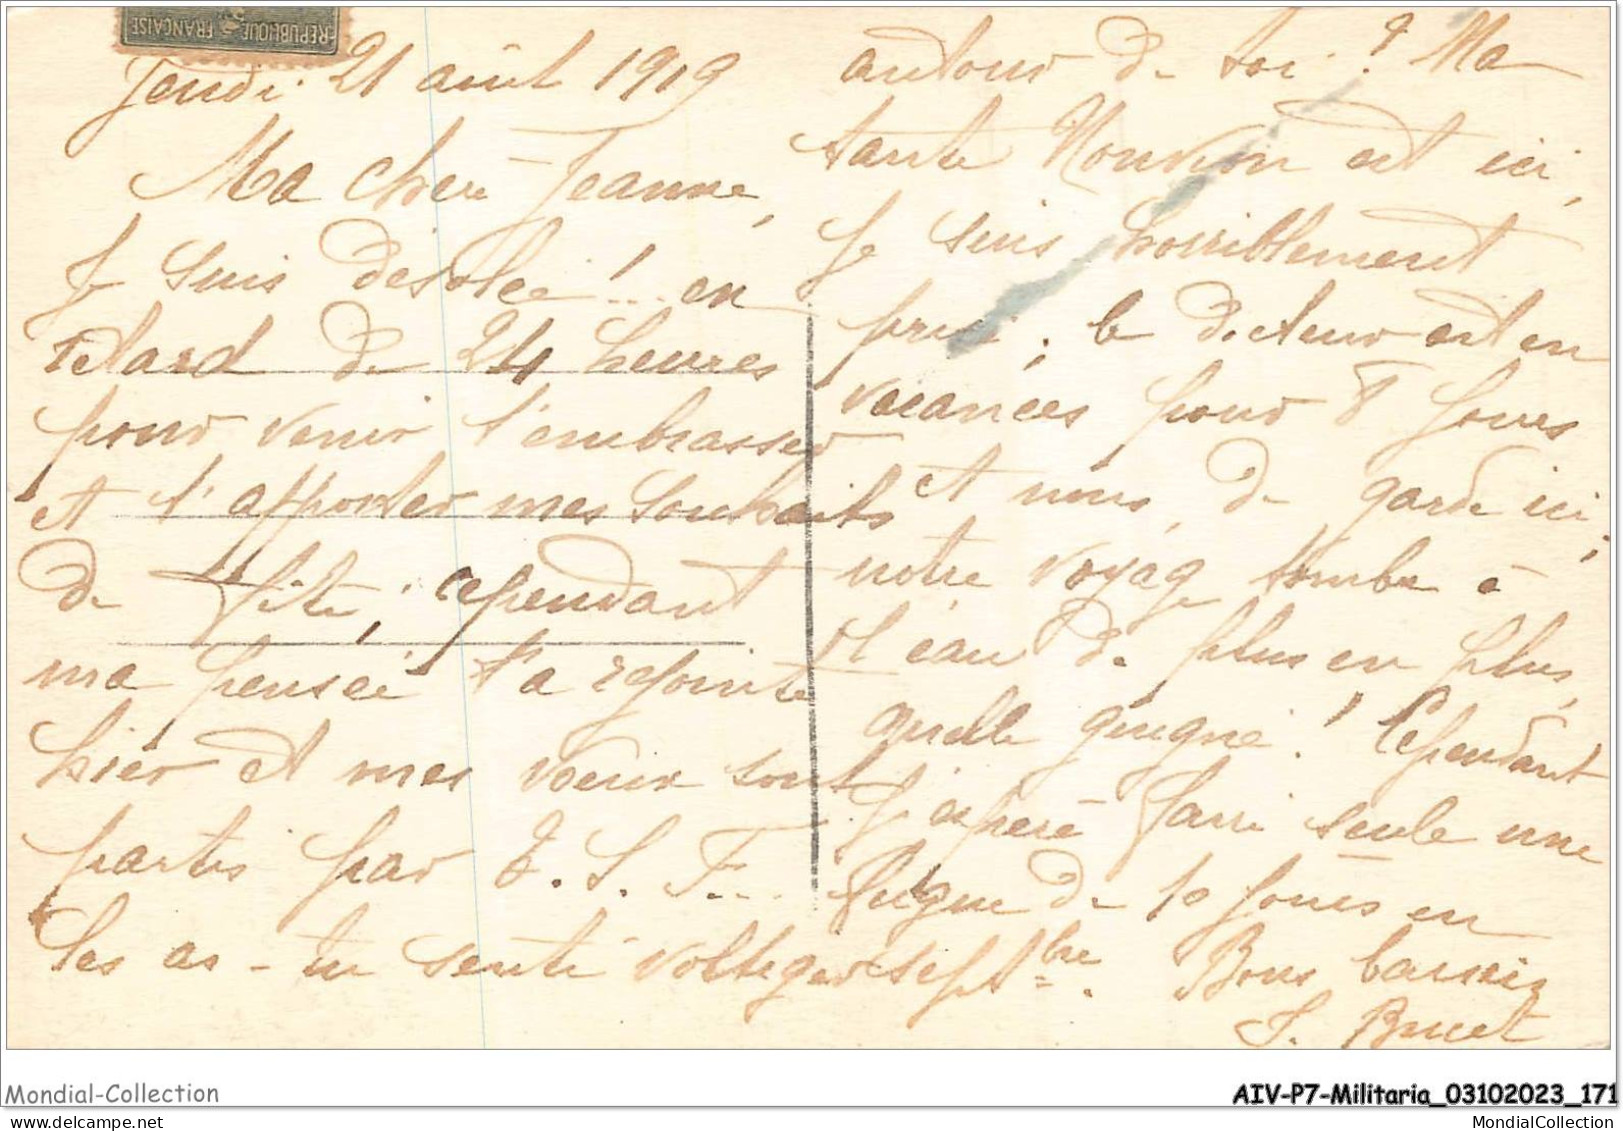 RÉPUBLIQUE FRANÇAISE
Jeudi 21 août 1919
Ma chère Jeanne,
Je suis désolée !... en
retard de 24 heures
pour venir t'embrasser
et t'apporter mes souhaits
de fête, cependant
ma pensée t'a rejointe
hier et mes vœux sont
partis par T. S. F...
Les as-tu senti voltiger
autour de toi ? Ma
tante Nouvion est ici,
je suis horriblement
prise, le docteur est en
vacances pour 8 jours
et nous de garde ici,
notre voyage tombe à
l'eau de plus en plus,
quelle guigne ! Cependant
j'espère faire seule une
fugue de 10 jours en
septbre. Bons baisers
J. Bucet
Mondial-Collection
AIV-P7-Militaria_03102023_171
www.mondialcollection.net
MondialCollection